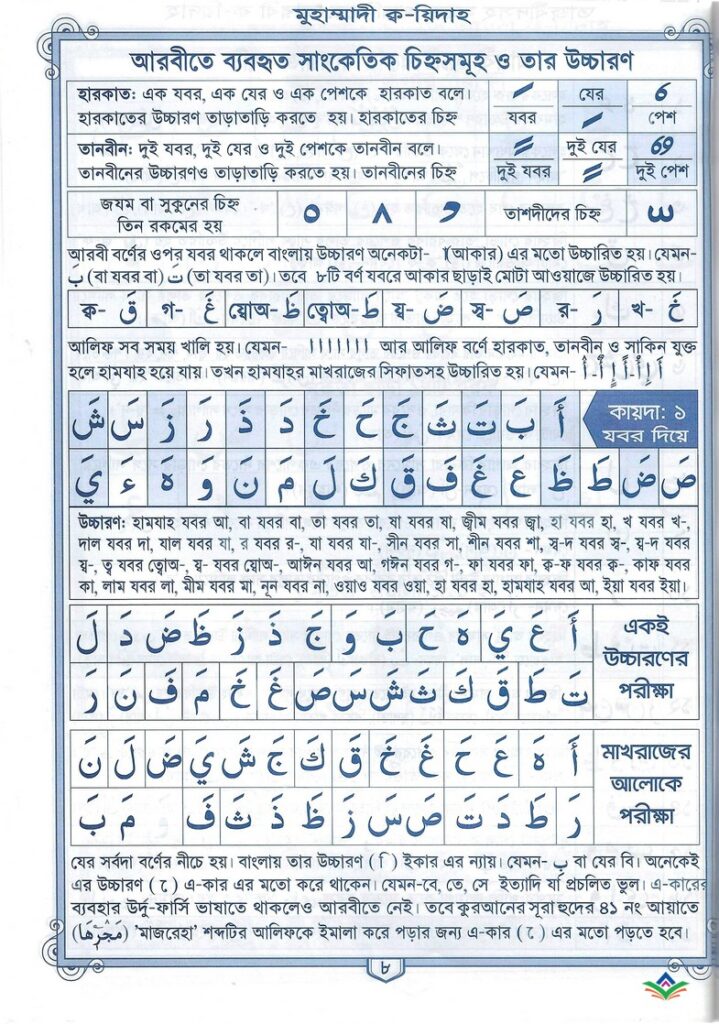 মুহাম্মাদী ক-য়িদাহ
আরবীতে ব্যবহৃত সাংকেতিক চিহ্নসমূহ ও তার উচ্চারণ
হারকাত: এক যবর, এক যের ও এক পেশকে হারকাত বলে।
হারকাতের উচ্চারণ তাড়াতাড়ি করতে হয়। হারকাতের চিহ্ন
যবর যের পেশ
তানবীন: দুই যবর, দুই যের ও দুই পেশকে তানবীন বলে।
তানবীনের উচ্চারণও তাড়াতাড়ি করতে হয়। তানবীনের চিহ্ন
দুই যবর দুই যের দুই পেশ
জযম বা সুকুনের চিহ্ন
তিন রকমের হয়
তাশদীদের চিহ্ন
আরবী বর্ণের ওপর যবর থাকলে বাংলায় উচ্চারণ অনেকটা- া(আকার) এর মতো উচ্চারিত হয়। যেমন-
بَ (বা যবর বা) تَ (তা যবর তা)। তবে ৮টি বর্ণ যবরে আকার ছাড়াই মোটা আওয়াজে উচ্চারিত হয়।
خَ খ- رَ র- صَ স্ব- ضَ য়- طَ ত্বোঅ- ظَ য্বোঅ- غَ গ- قَ ক্ব-
আলিফ সব সময় খালি হয়। যেমন- ا ا ا ا ا ا ا ا আর আলিফ বর্ণে হারকাত, তানবীন ও সাকিন যুক্ত
হলে হামযাহ হয়ে যায়। তখন হামযাহর মাখরাজের সিফাতসহ উচ্চারিত হয়। যেমন-
কায়দা: ১
যবর দিয়ে
أَ بَ تَ ثَ جَ حَ خَ دَ ذَ رَ زَ سَ شَ
صَ ضَ طَ ظَ عَ غَ فَ قَ كَ لَ مَ نَ وَ هَ ءَ يَ
উচ্চারণ: হামযাহ যবর আ, বা যবর বা, তা যবর তা, যা যবর যা, জ্বীম যবর জ্বা, হা যবর হা, খ যবর খ-,
দাল যবর দা, যাল যবর যা, র যবর র-, যা যবর যা-, সীন যবর সা, শীন যবর শা, স্ব-দ যবর স্ব-, য়-দ যবর
য়-, ত্ব যবর ত্বোঅ-, য়- যবর য্বোঅ-, আঈন যবর আ, গঈন যবর গ-, ফা যবর ফা, ক্ব-ফ যবর ক্ব-, কাফ যবর
কা, লাম যবর লা, মীম যবর মা, নূন যবর না, ওয়াও যবর ওয়া, হা যবর হা, হামযাহ যবর আ, ইয়া যবর ইয়া।
একই
উচ্চারণের
পরীক্ষা
أَ عَ يَ هَ حَ بَ وَ جَ ذَ زَ ظَ ضَ دَ لَ
تَ طَ قَ كَ ثَ شَ سَ صَ غَ خَ مَ فَ نَ رَ
মাখরাজের
আলোকে
পরীক্ষা
أَ هَ عَ حَ غَ خَ قَ كَ جَ شَ يَ ضَ لَ نَ
رَ طَ دَ تَ صَ سَ زَ ظَ ذَ ثَ فَ وَ مَ بَ
যের সর্বদা বর্ণের নীচে হয়। বাংলায় তার উচ্চারণ (ি) ইকার এর ন্যায়। যেমন- بِ বা যের বি। অনেকেই
এর উচ্চারণ (ে) এ-কার এর মতো করে থাকেন। যেমন-বে, তে, সে ইত্যাদি যা প্রচলিত ভুল। এ-কারের
ব্যবহার উর্দু-ফার্সি ভাষাতে থাকলেও আরবীতে নেই। তবে কুরআনের সূরা হুদের ৪১ নং আয়াতে
(مَجْرٖىهَا) 'মাজরেহা' শব্দটির আলিফকে ইমালা করে পড়ার জন্য এ-কার (ে) এর মতো পড়তে হবে।
৮